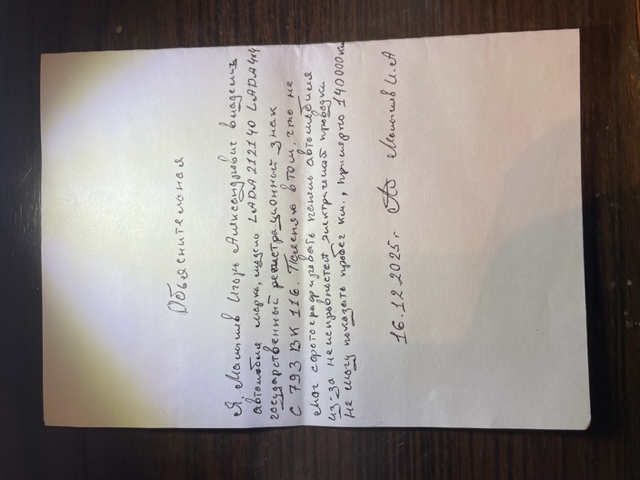 Объяснительная
Я, Малышев Игорь Александрович владелец
автомобиля марка, модель LADA 212140 LADA 4х4
государственный регистрационный знак
С 793 ВК 116. Поясняю в том, что не
смог сфотографировать панель автомобиля
из-за неисправностей электрической проводки
Не могу показать пробег км., примерно 140000км
16.12.2025г. Малышев И.А